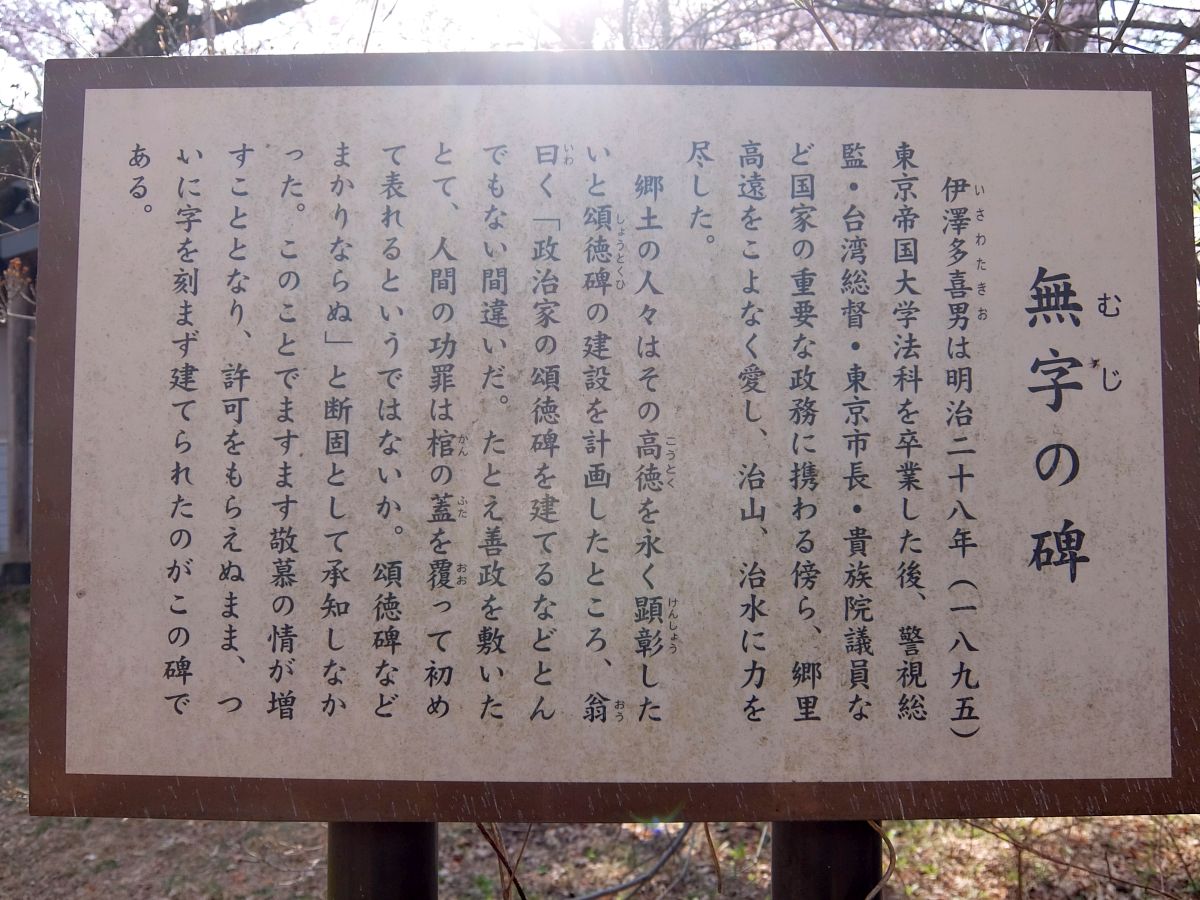 無字の碑
むじ
伊澤多喜男は明治二十八年(一八九五)
いさわたきお
東京帝国大学法科を卒業した後、警視総
監・台湾総督・東京市長・貴族院議員な
ど国家の重要な政務に携わる傍ら、郷里
高遠をこよなく愛し、治山、治水に力を
尽した。
郷土の人々はその高徳を永く顕彰した
こうとく
けんしょう
いと頌徳碑の建設を計画したところ、翁
しょうとくひ
おう
曰く「政治家の頌徳碑を建てるなどとん
いわ
でもない間違いだ。たとえ善政を敷いた
とて、人間の功罪は棺の蓋を覆って初め
かん
ふた
おお
て表れるというではないか。頌徳碑など
まかりならぬ」と断固として承知しなか
った。このことでますます敬慕の情が増
すこととなり、許可をもらえぬまま、つ
いに字を刻まず建てられたのがこの碑で
ある。